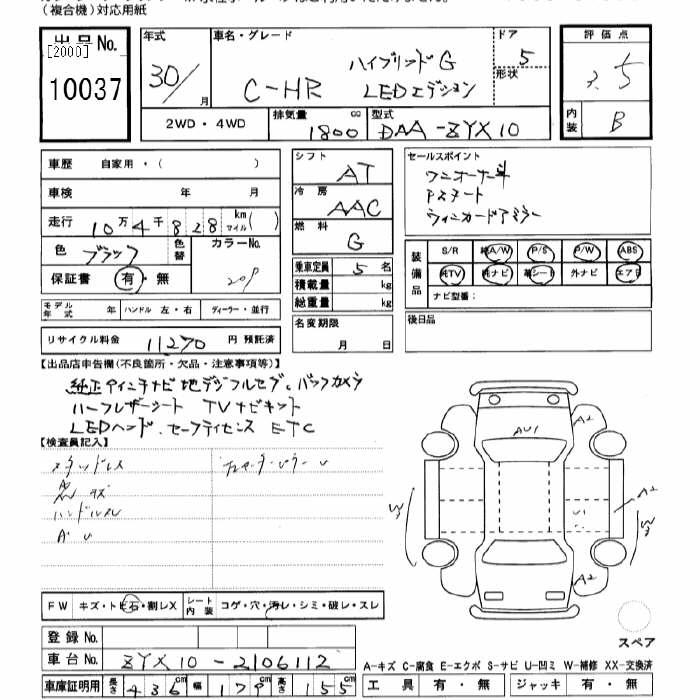 (複合機)対応用紙
出品No.
[2000]
10037
年式
30/
月
車名・グレード
C-HR
ハイブリッドG
LEDエディション
ドア
5
形状
評価点
5
内装
B
2WD・4WD
排気量
cc
1800
型式
DAA-ZYX10
車歴 自家用・( )
車検 年 月
走行 10万4千828 km マイル( )
色 ブラック
色替
カラーNo.
209
保証書 有・無
モデル年式 年 ハンドル 左・右 ディーラー・並行
リサイクル料金 11270 円 預託済
シフト
AT
冷房
AAC
燃料
G
乗車定員 5 名
積載量 kg
総重量 kg
名変期限
月 日
セールスポイント
ワンオーナー車
Pスタート
ウィンカードアミラー
装備品
S/R 純A/W P/S P/W ABS
純TV 純ナビ 革シート 外ナビ エアB
ナビ型番:
後日品
【出品店申告欄(不良箇所・欠品・注意事項等)】
純正9インチナビ 地デジフルセグ、バックカメラ
ハーフレザーシート TVナビキット
LEDヘッド、セーフティセンス ETC
【検査員記入】
ハンドルスレ
AU1
A2
A2
U1
A2
W3
W3
FW キズ・トビ石・割レX
シート内装 コゲ・穴・汚レ・シミ・破レ・スレ
スペア
登録No.
車台No. ZYX10-2106112
A-キズ C-腐食 E-エクボ S-サビ U-凹ミ W-補修 XX-交換済
車庫証明用 長さ 436 cm 幅 179 cm 高さ 155 cm
工具 有・無 ジャッキ 有・無